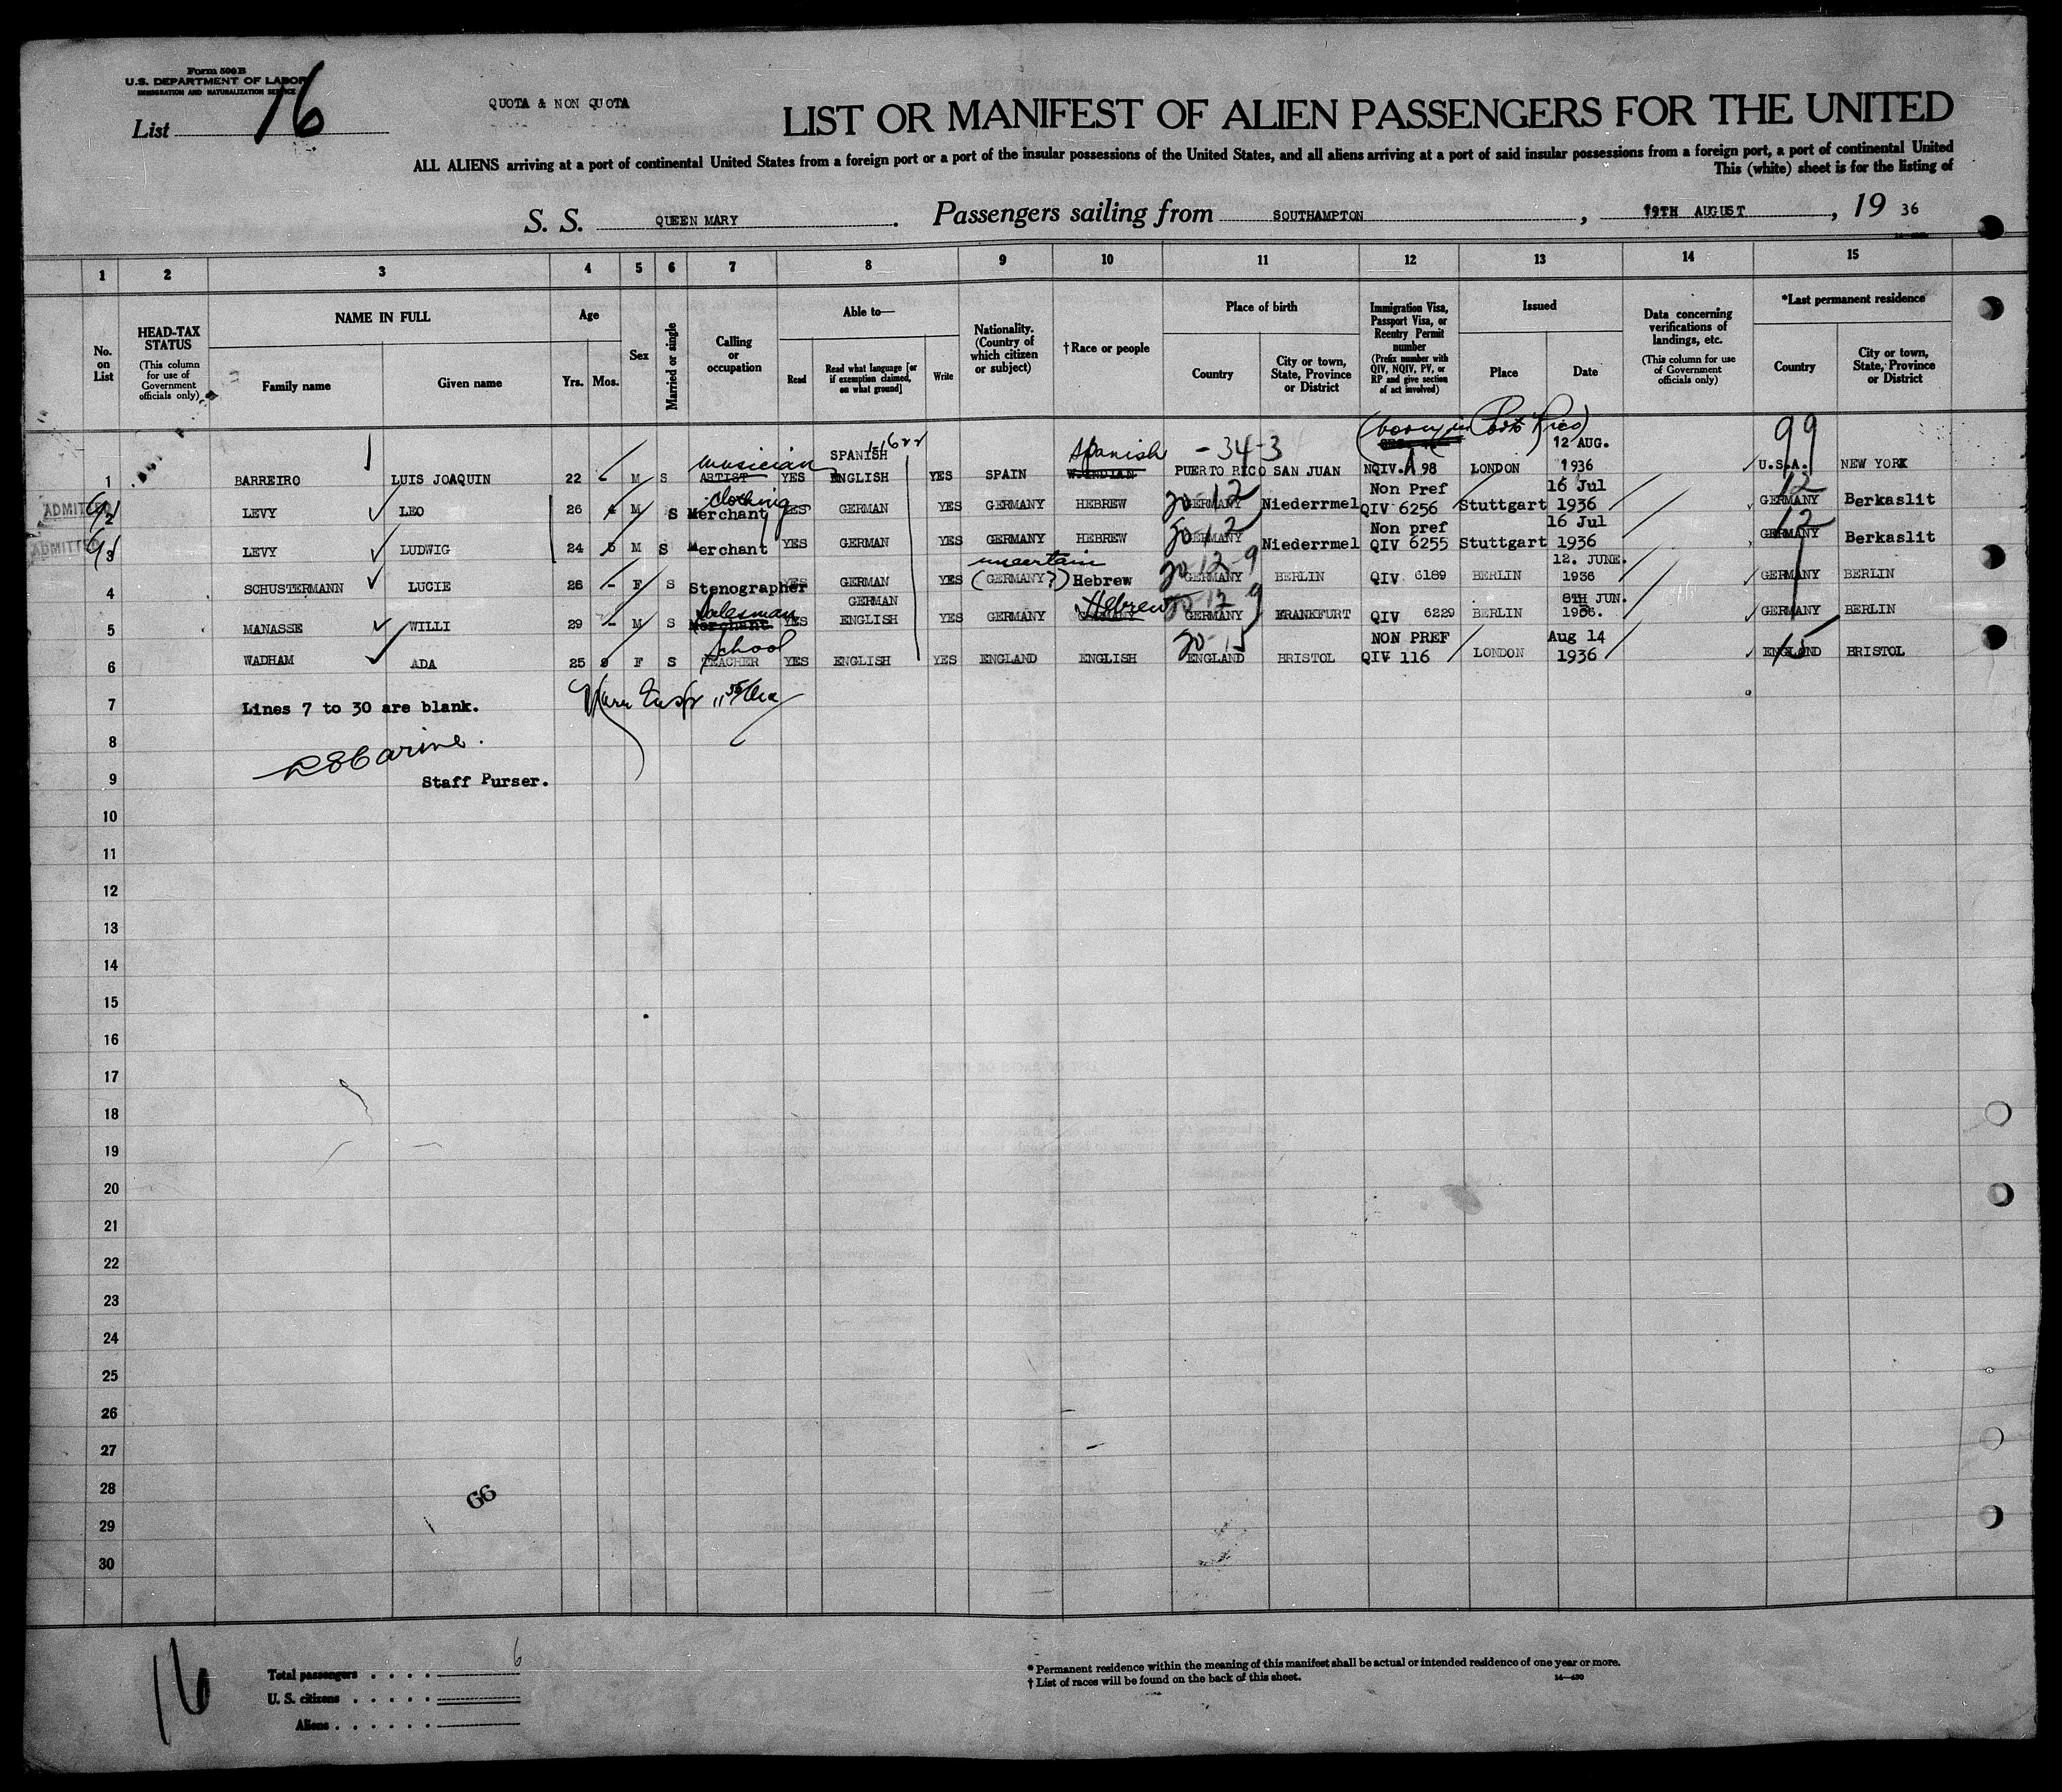 Form 500 B
U.S. DEPARTMENT OF LABOR
IMMIGRATION AND NATURALIZATION SERVICE
List 16
QUOTA & NON QUOTA
LIST OR MANIFEST OF ALIEN PASSENGERS FOR THE UNITED
ALL ALIENS arriving at a port of continental United States from a foreign port or a port of the insular possessions of the United States, and all aliens arriving at a port of said insular possessions from a foreign port, a port of continental United
This (white) sheet is for the listing of
S. S. QUEEN MARY. Passengers sailing from SOUTHAMPTON, 19TH AUGUST, 19 36
1 2 3 4 5 6 7 8 9 10 11 12 13 14 15
No. on List
HEAD-TAX STATUS (This column for use of Government officials only)
NAME IN FULL
Family name
Given name
Age
Yrs. Mos.
Sex
Married or single
Calling or occupation
Able to—
Read
Read what language [or if exemption claimed, on what ground]
Write
Nationality. (Country of which citizen or subject)
†Race or people
Place of birth
Country
City or town, State, Province or District
Immigration Visa, Passport Visa, or Reentry Permit number (Prefix number with QIV, NQIV, PV, or RP and give section of act involved)
Issued
Place
Date
Data concerning verifications of landings, etc. (This column for use of Government officials only)
*Last permanent residence
Country
City or town, State, Province or District
(born in Porto Rico)
musician SPANISH Spanish -34-3 12 AUG. 99
1 BARREIRO LUIS JOAQUIN 22 M S ARTIST YES ENGLISH YES SPAIN W.INDIAN PUERTO RICO SAN JUAN NQIV. 98 LONDON 1936 U.S.A. NEW YORK
clothing 20-12 Non Pref 16 Jul 12
ADMITTED 2 LEVY LEO 26 4 M S Merchant YES GERMAN YES GERMANY HEBREW GERMANY Niederrmel QIV 6256 Stuttgart 1936 GERMANY Berkaslit
20-12 Non pref 16 Jul 12
ADMITTED 3 LEVY LUDWIG 24 5 M S Merchant YES GERMAN YES GERMANY HEBREW GERMANY Niederrmel QIV 6255 Stuttgart 1936 GERMANY Berkaslit
uncertain 20-12-9 12. JUNE.
4 SCHUSTERMANN LUCIE 26 - F S Stenographer YES GERMAN YES (GERMANY?) Hebrew GERMANY BERLIN QIV 6189 BERLIN 1936 GERMANY BERLIN
Salesman GERMAN Hebrew 20-12 9 8TH JUN.
5 MANASSE WILLI 29 - M S Merchant YES ENGLISH YES GERMANY GERMANY GERMANY FRANKFURT QIV 6229 BERLIN 1936. GERMANY BERLIN
School 20-15 NON PREF Aug 14 15
6 WADHAM ADA 25 9 F S TEACHER YES ENGLISH YES ENGLAND ENGLISH ENGLAND BRISTOL QIV 116 LONDON 1936 ENGLAND BRISTOL
7 Lines 7 to 30 are blank.
8
9 Staff Purser.
10
11
12
13
14
15
16
17
18
19
20
21
22
23
24
25
26
27
28
66
29
30
16
Total passengers . . . . 6
U. S. citizens . . . . .
Aliens . . . . . .
* Permanent residence within the meaning of this manifest shall be actual or intended residence of one year or more.
† List of races will be found on the back of this sheet.
14—430